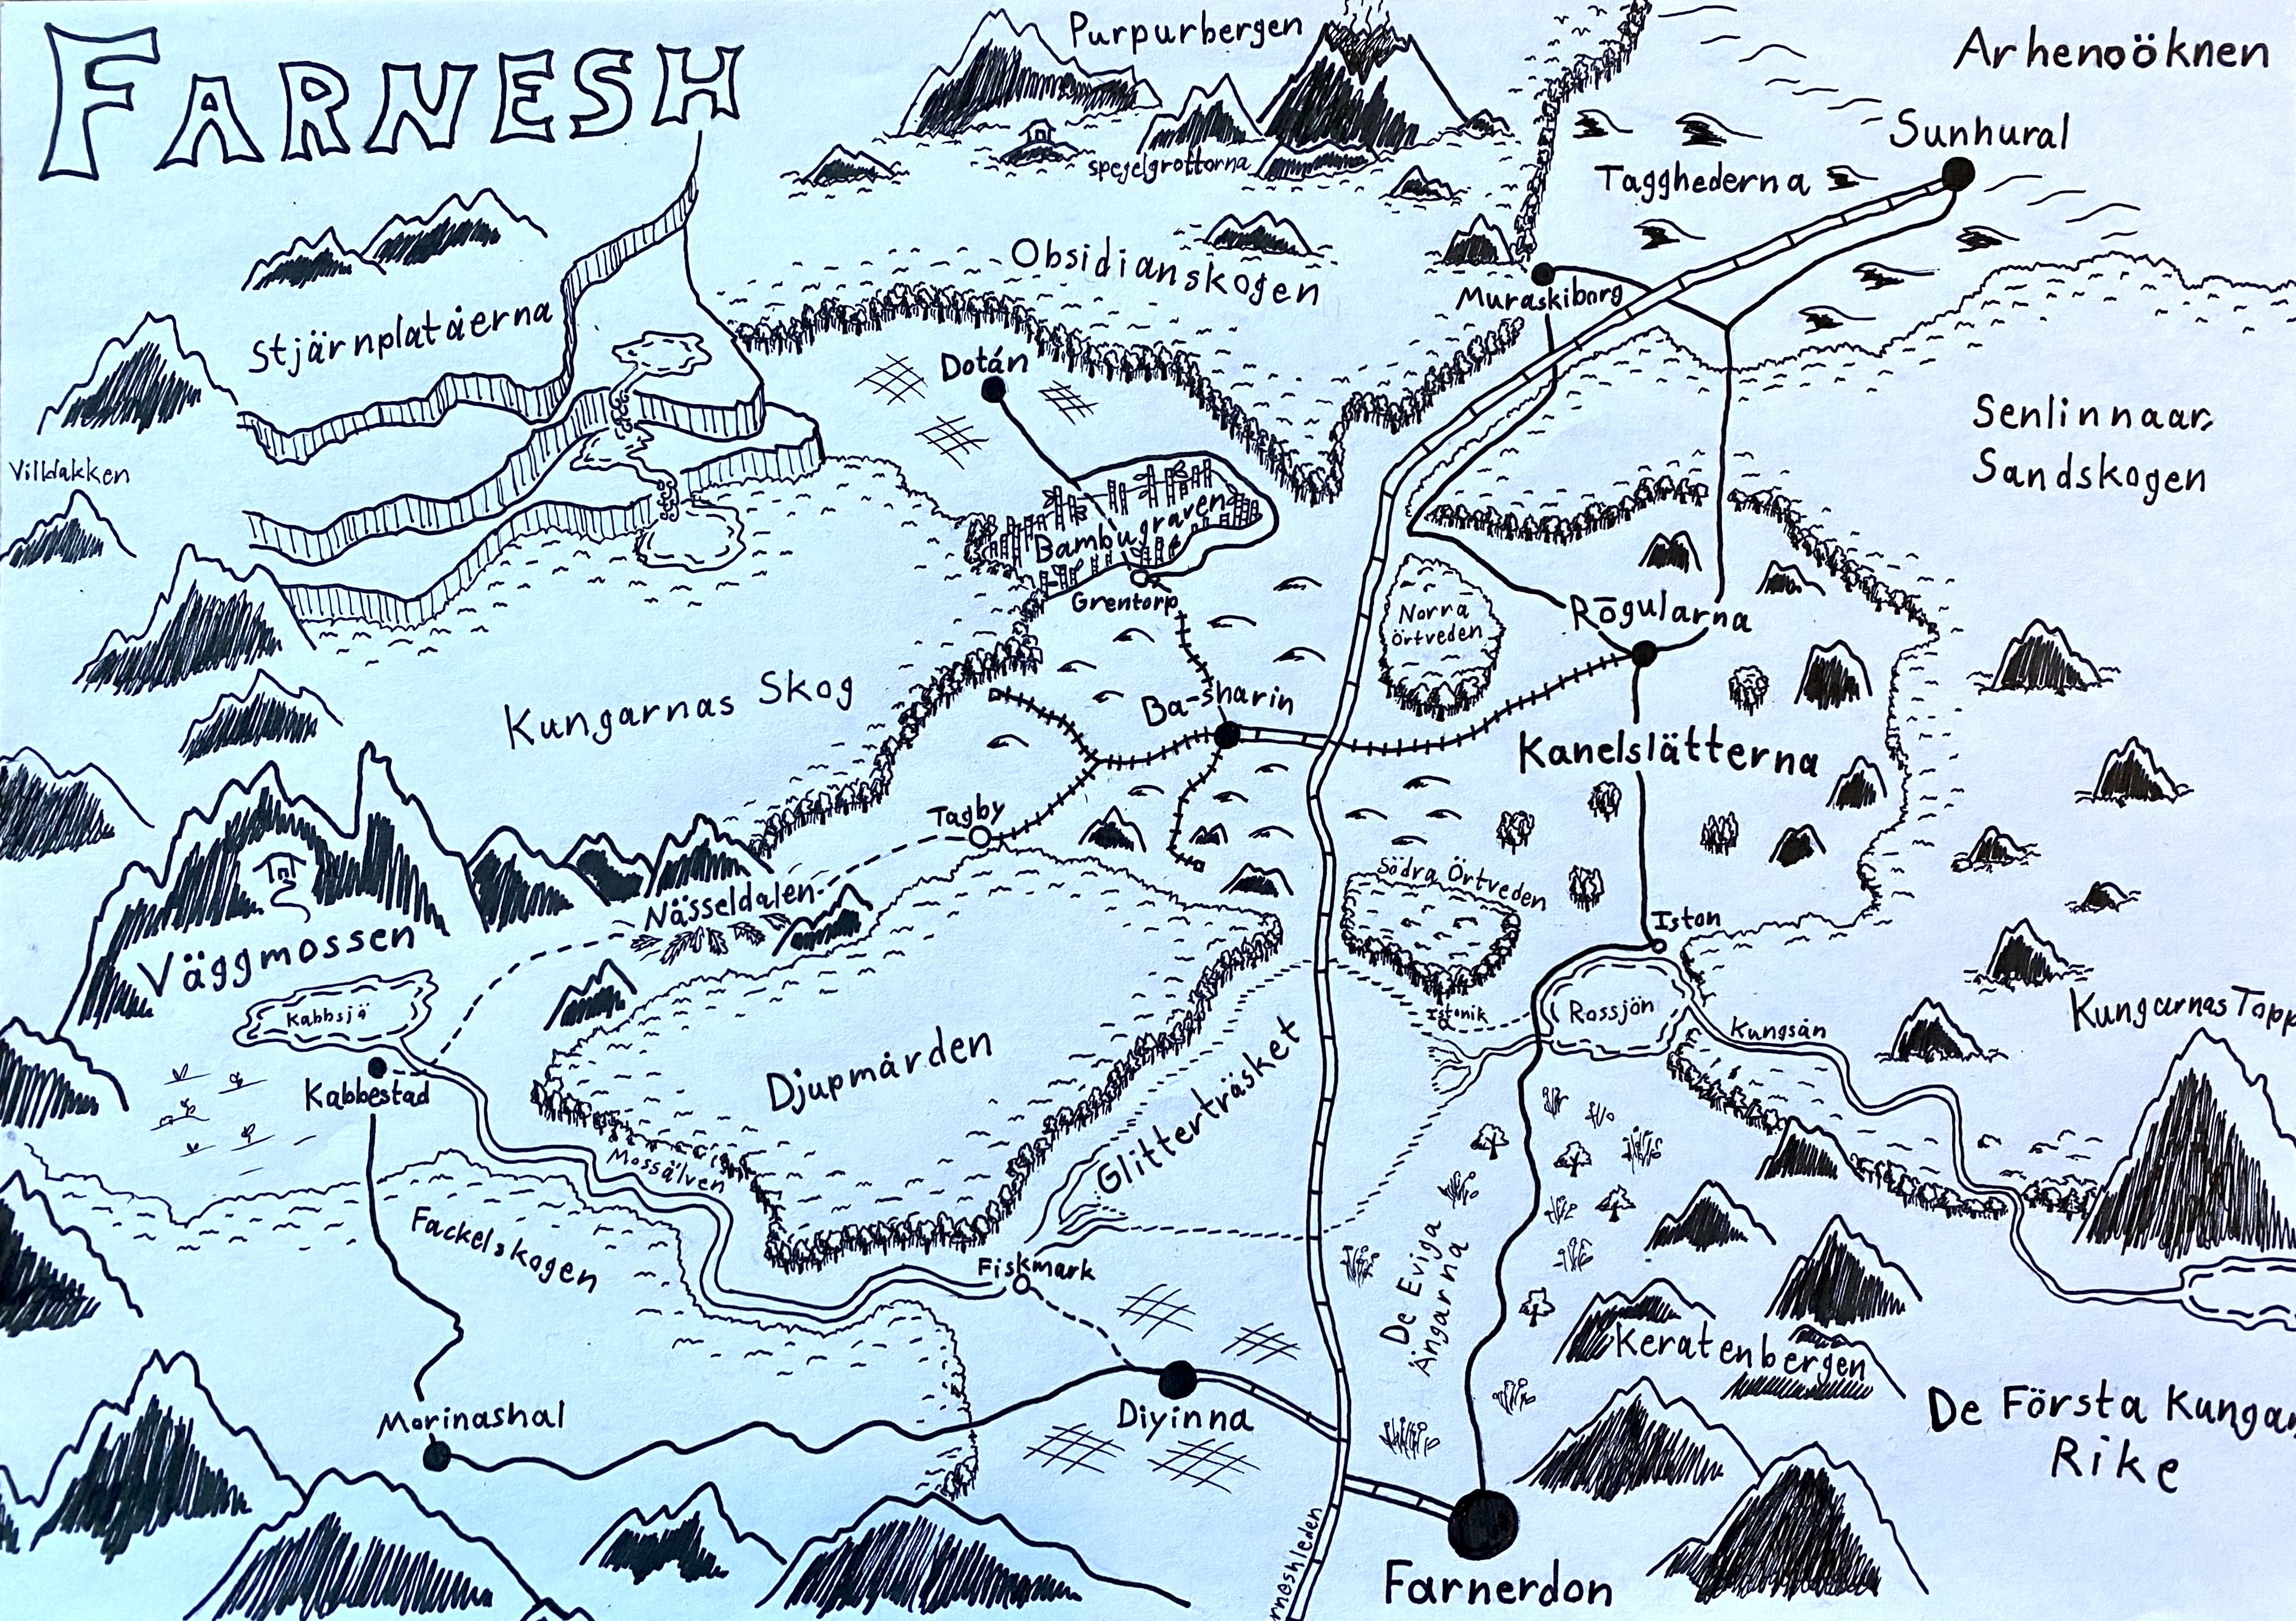 FARNESH
Purpurbergen
Arhenoöknen
Sunhural
spegelgrottorna
Tagghederna
Obsidianskogen
Muraskiborg
Stjärnplatåerna
Dotán
Senlinnaar,
Sandskogen
Villdakken
Bambugraven
Grentorp
Norra
Örtveden
Rōgularna
Kungarnas Skog
Ba-sharin
Kanelslätterna
Tagby
Nässeldalen
Södra Örtveden
Iston
Väggmossen
Kabbsjö
Istanik
Rossjön
Kungsån
Kungarnas Topp
Djupmården
Kabbestad
Glitterträsket
Mossälven
Fackelskogen
Fiskmark
De Eviga
Ängarna
Keratenbergen
De Första Kunga
Rike
Morinashal
Diyinna
rneshleden
Farnerdon